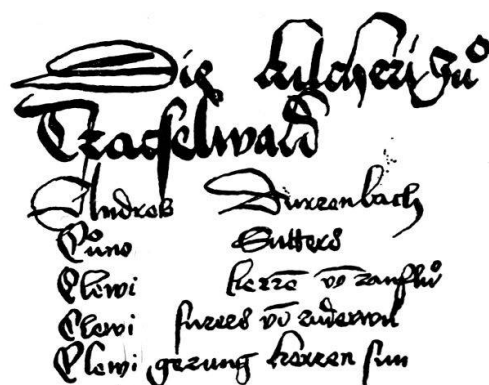 Die kilcheri zů
Trachselwald
Andres Durrenbach
Cůno Sutters
Clewi herre vō ranflů
Clewi surers vō
Clewi gerung herren sun